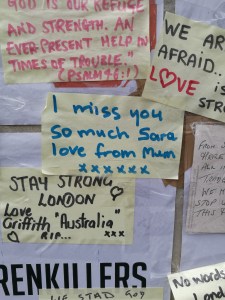 GOD IS OUR REFUGE
AND STRENGTH. AN
EVER-PRESENT HELP IN
TIMES OF TROUBLE."
(PSALM 46:1)
WE ARE
AFRAID..
LOVE is
STRO
I miss you
so much Sara
love from Mum
xxxxxx
STAY STRONG
LONDON
Love
Griffith "Australia"
R.I.P... xxx
RENKILLERS
No words